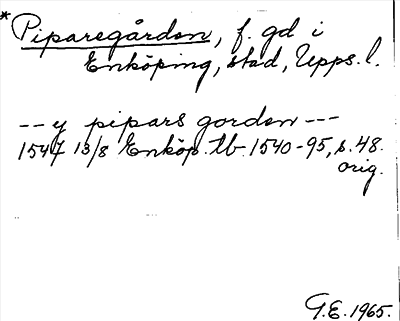 * Piparegården, f. gd i
Enköping, stad, Upps. l.
--- y pipars gorden ---
1547 13/8 Enköp. tb. 1540-95, s. 48.
orig.
G.E. 1965.